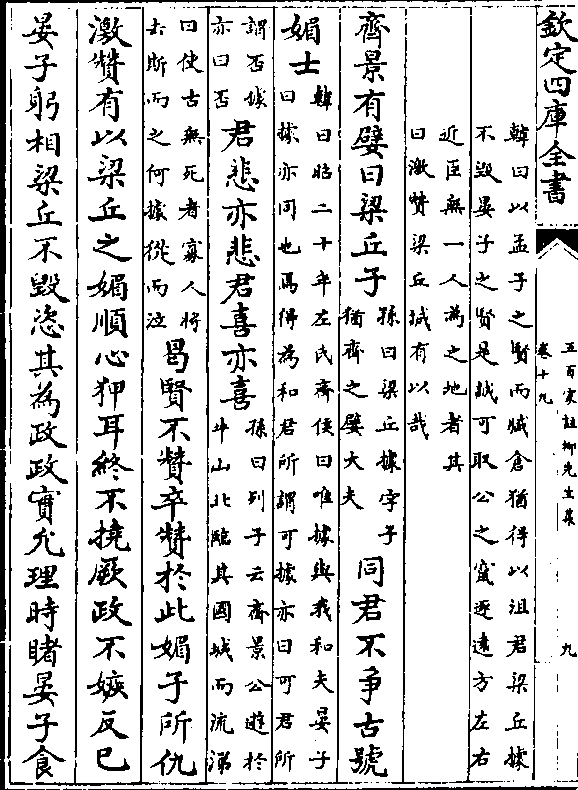 欽定四庫全書
五百家註柳先生集
卷十九
九
韓曰以孟子之賢而臧倉猶得以沮君梁丘據
不毀晏子之賢是誠可取公之竄逐遠方左右
近臣無一人為之地者其
曰激贊梁丘誠有以哉
齊景有嬖曰梁丘子孫曰梁丘據字子猶齊之嬖大夫同君不爭古號
媚士韓曰昭二十年左氏齊侯曰唯據與我和夫晏子曰據亦同也焉得為和君所謂可據亦曰可君所
謂否據亦曰否君悲亦悲君喜亦喜孫曰列子云齊景公遊於牛山北臨其國城而流涕
曰使古無死者寡人將去斯而之何據從而泣曷賢不贊卒贊於此媚子所仇
激贊有以梁丘之媚順心狎耳終不撓厥政不嫉反已
晏子躬相梁丘不毀恣其為政政實允理時睹晏子食